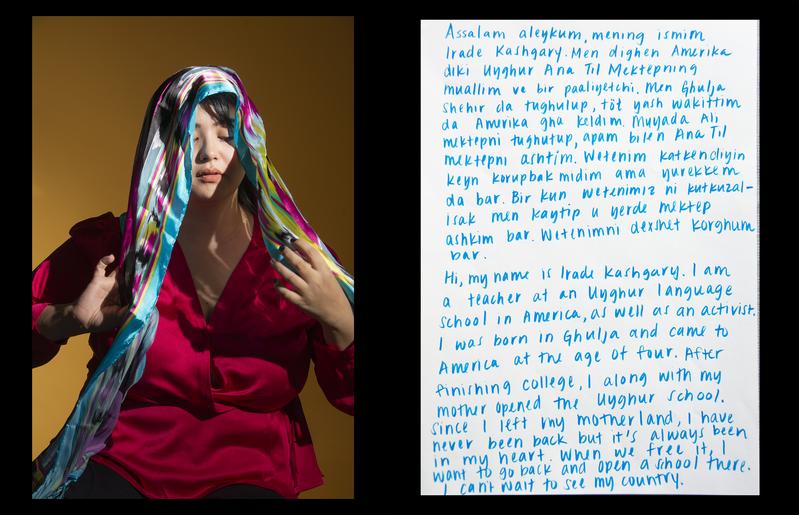 Assalam aleykum, mening ismim
Irade Kashgary. Men dighen Amerika
diki Uyghur Ana Til Mektepning
muallim ve bir paaliyetchi. Men Ghulja
shehir da tughulup, töt yash wakittim
da Amerika gha keldim. Muyada Ali
mektepni tughutup, apam bilen Ana Til
mektepni ashtim. Wetenim katkendiyin
keyn korupbak midim ama yurekkem
da bar. Bir kun wetenimiz ni kutkuzal-
isak men kaytip u yerde mektep
ashkim bar. Wetenimni dexshet korghum
bar.
Hi, my name is Irade Kashgary. I am
a teacher at an Uyghur language
school in America, as well as an activist.
I was born in Ghulja and came to
America at the age of four. After
finishing college, I along with my
mother opened the Uyghur school.
since I left my motherland, I have
never been back but it's always been
in my heart. When we free it, I
want to go back and open a school there.
I can't wait to see my country.